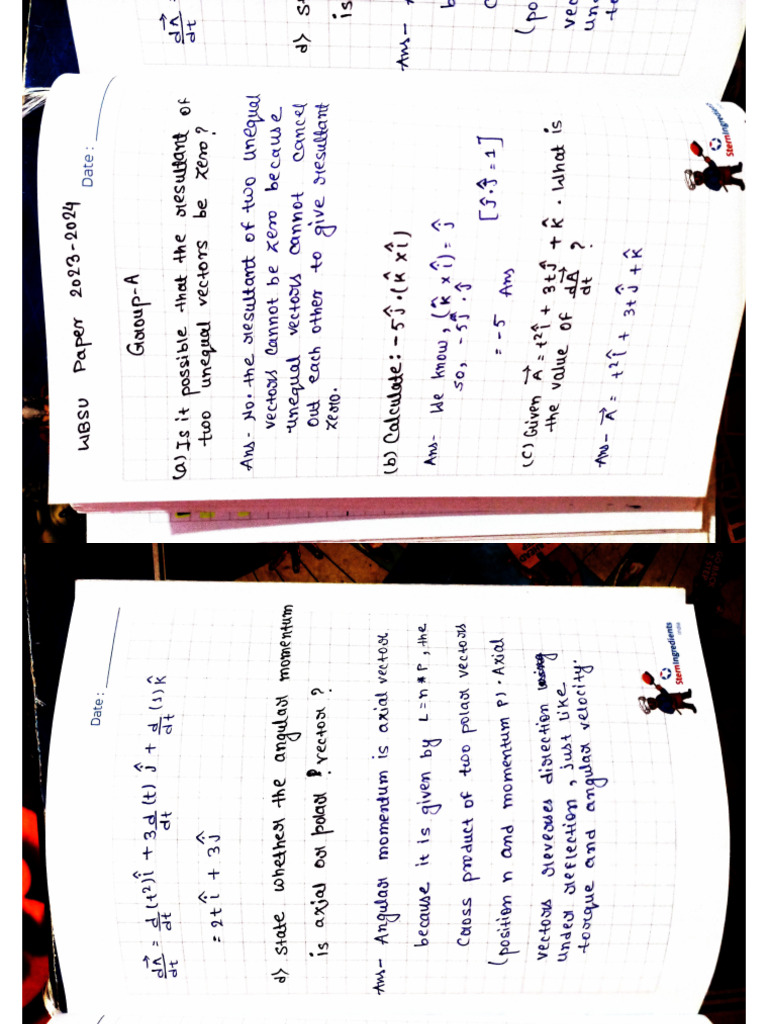 Date:
WBSU Paper 2023-2024
Group-A
(a) Is it possible that the resultant of
two unequal vectors be zero?
Ans- No. the resultant of two unequal
vectors cannot be zero because
unequal vectors cannot cancel
out each other to give resultant
zero.
(b) Calculate: -5ĵ·(k̂ × î)
Ans- We know, (k̂ × î) = ĵ
so, -5ĵ·ĵ
= -5 Ans [ĵ·ĵ = 1]
(c) Given A⃗ = t²î + 3tĵ + k̂. What is
the value of dA⃗/dt ?
Ans- A⃗ = t²î + 3tĵ + k̂
SternIngredients
Date:
dA⃗/dt = d/dt (t²)î + 3d/dt (t) ĵ + d/dt (1) k̂
= 2tî + 3ĵ
d) State whether the angular momentum
is axial or polar vector?
Ans- Angular momentum is axial vector
because it is given by L = n * P, the
Cross product of two polar vectors
(position n and momentum P). Axial
vectors reverses direction
under reflection, just like
torque and angular velocity.
SternIngredients
India